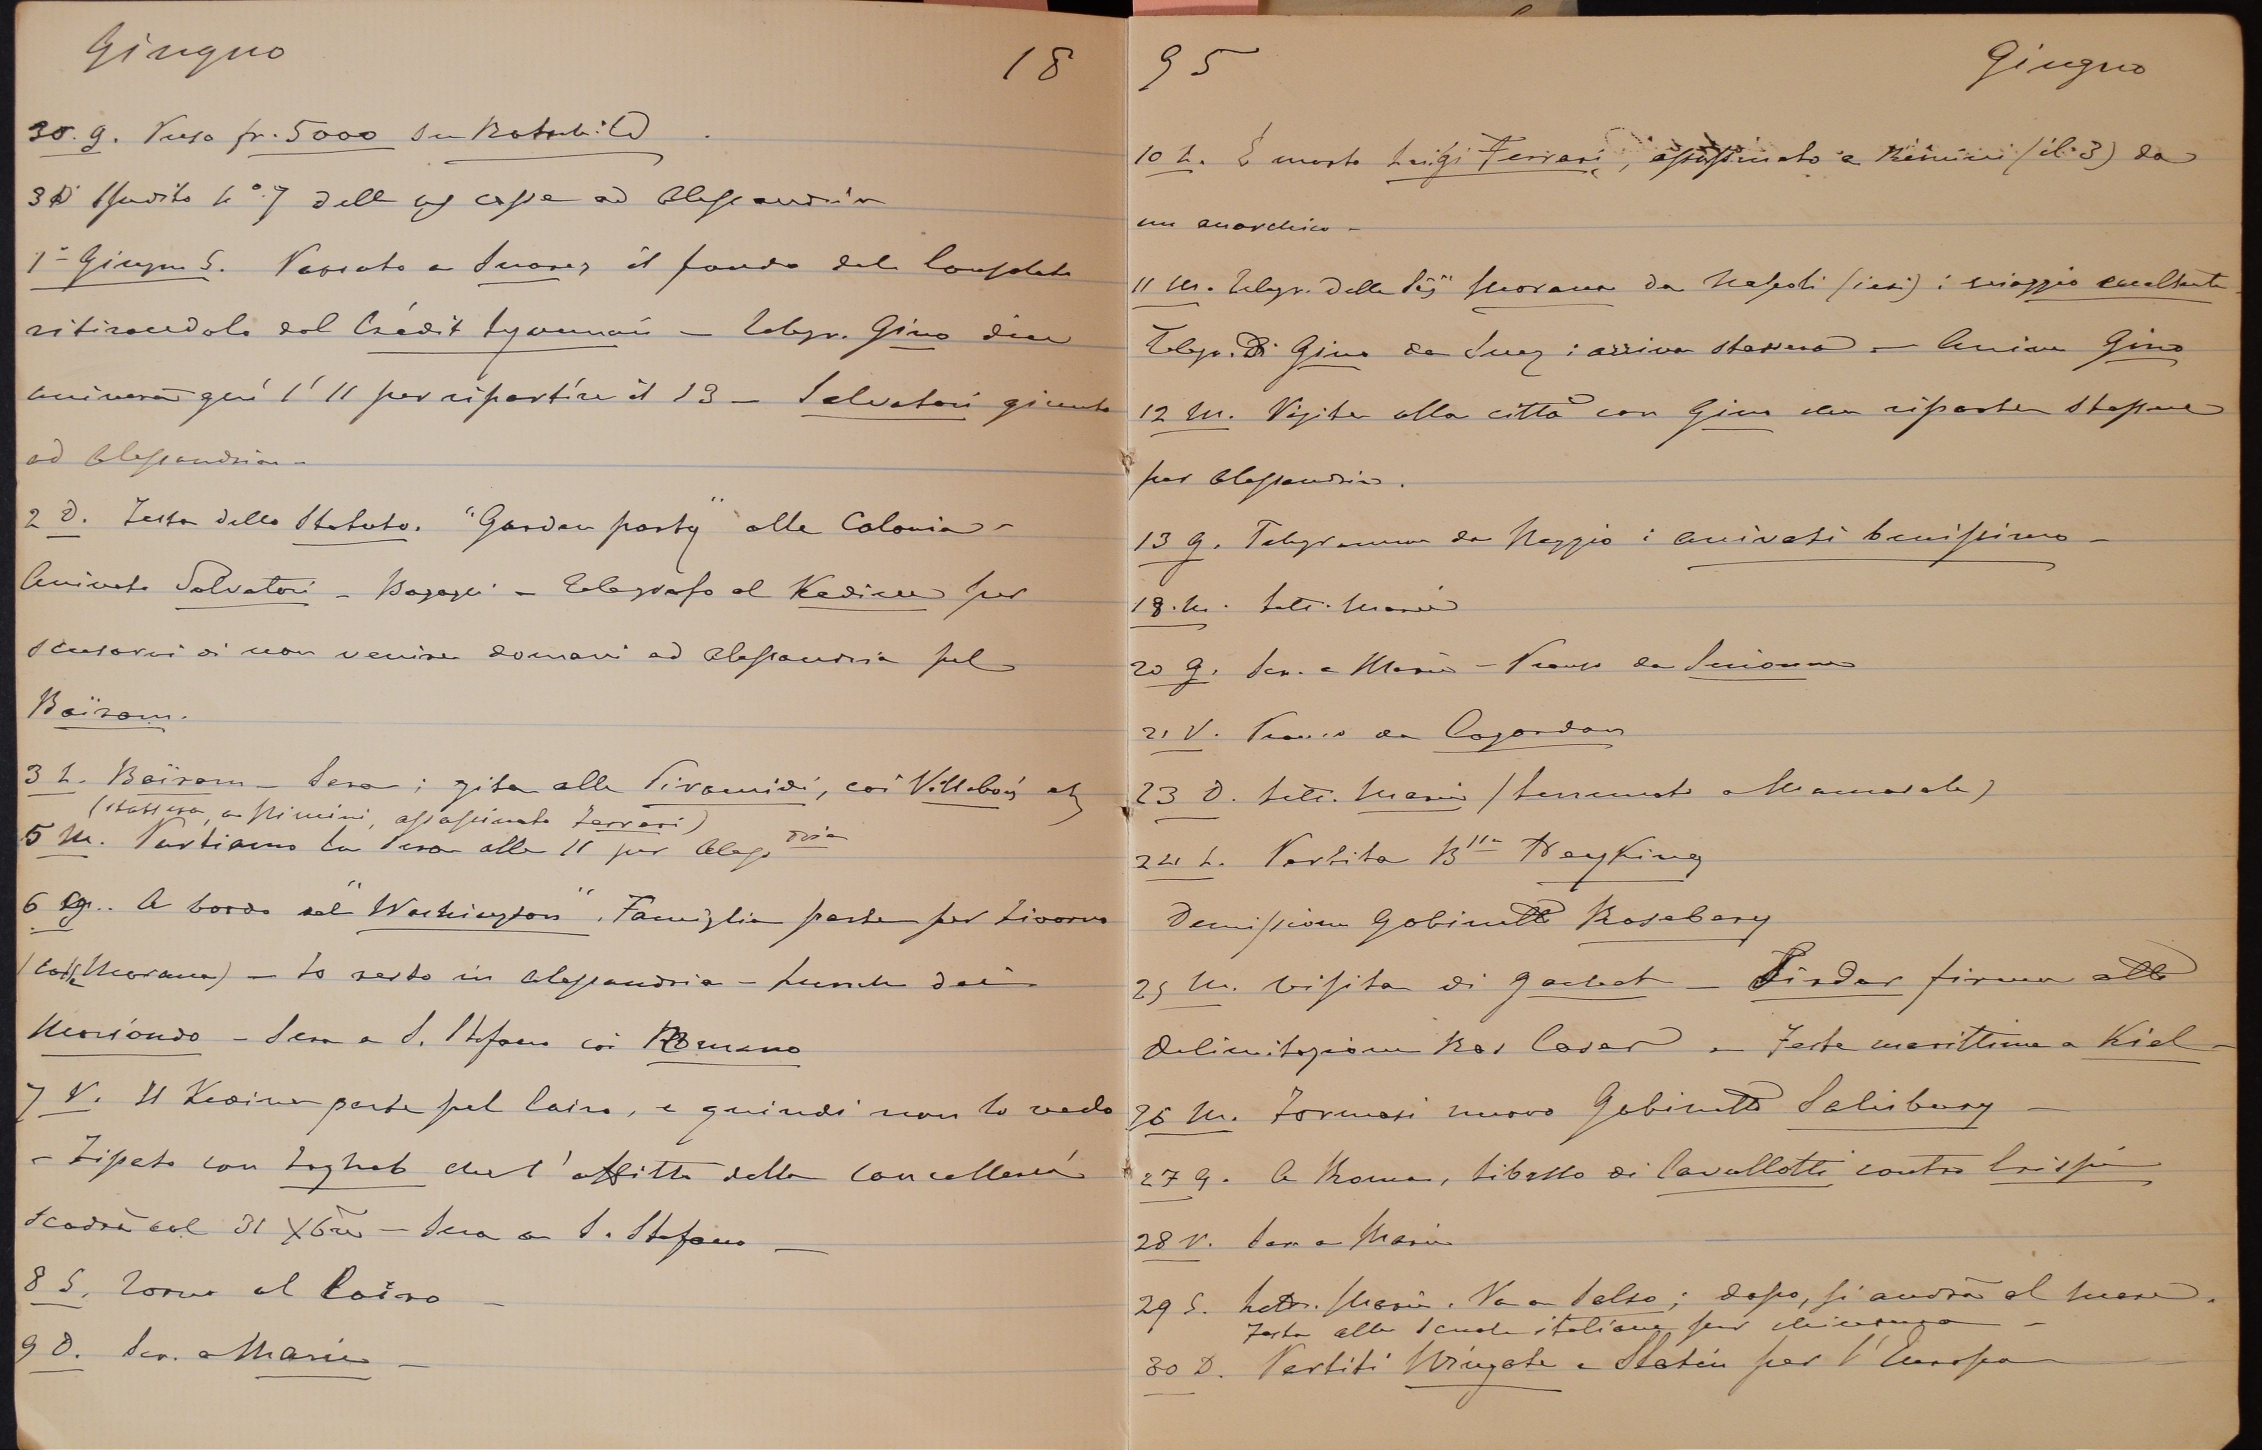 Giugno 18
30. g. Preso fr. 5000 su Rotschild.
31 Spedito n° 7 delle casse ad Alessandria
1° Giugno S. Passato a Suares il fondo del Consolato
ritirandolo dal Crédit Lyonnais – Telegr. Gino dice
arriverà qui l'11 per ripartire il 13 – Salvatori giunto
ad Alessandria –
2 D. Festa dello Statuto. "Garden party" alla Colonia –
Arrivato Salvatori – Bagagli – Telegrafo al Kedive per
scusarmi di non venire domani ad Alessandria pel
Baïram.
3 L. Baïram – Sera; gita alle Piramidi, coi
(stassera, a Rimini, assassinato Ferrari)
5 M. Partiamo la sera alle 11 per Aless.dria
6 g. A bordo del "Washington". Famiglia parte per Livorno
Morana) – Io resto in Alessandria – Lunch dai
Moriondo – Sera a S. Stefano coi Romano
7 V. Il Kedive parte pel Cairo, e quindi non lo vedo
– Fissato con Zogheb che l'affitto della Cancelleria
scadrà col 31 Xbre – Sera a S. Stefano –
8 S. Torno al Cairo –
9 D. Scr. a Maria –
95 Giugno
10 L. È morto Luigi Ferrari, assassinato a Rimini (il 3) da
un anarchico –
11 M. Telegr. della Sig.ª Morana da Napoli (ieri): viaggio eccellente
Telegr. di Gino da Suez: arriva stassera – Arriva Gino
12 M. Visita alla città con Gino che riparte stassera
per Alessandria.
13 g. Telegramma da Reggio: arrivati benissimo –
18. M. Lett. Maria
20 g. Scr. a Maria – Pranzo da
21 V. Pranzo da Cogordan
23 D. Lett. Maria (terremoto a
24 L. Partita B.lla Heyking
Demissione Gabinetto Rosebery
25 M. Visita di – Sirdar firma atto
delimitazione Ras Casar – Feste marittime a Kiel –
26 M. Formasi nuovo Gabinetto Salisbury –
27 g. A Roma, libello di Cavallotti contro Crispi
28 V. Scr. a Maria
29 S. Lettr. Maria. Va a Salso; dopo, si andrà al mare.
Festa alle Scuole italiane per chiusura –
30 D. Partiti Wingate e Slatin per l'Europa